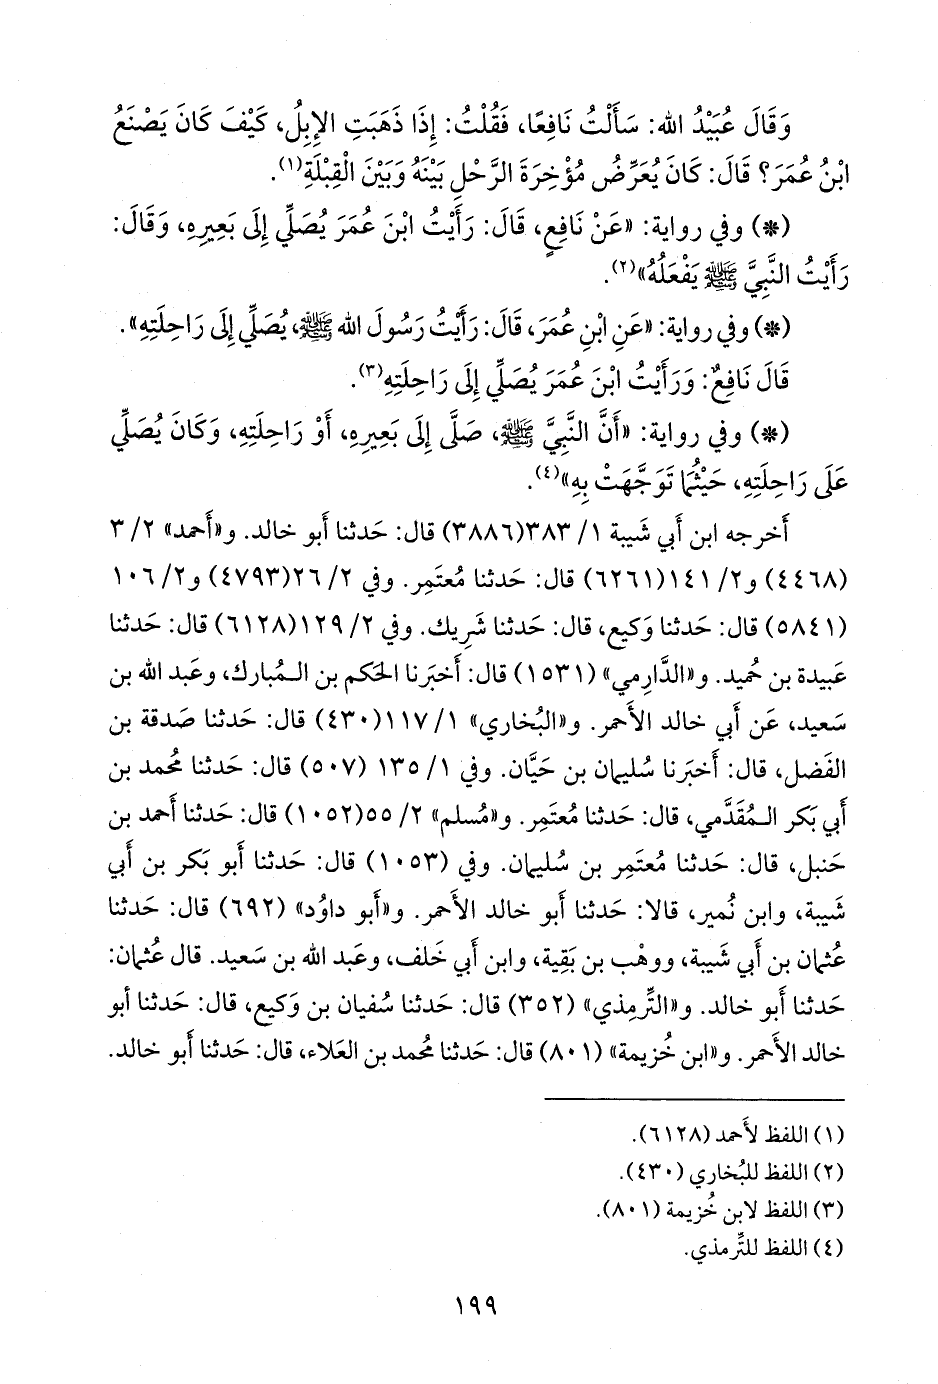 وَقَالَ عُبَيْدُ الله: سَأَلْتُ نَافِعًا، فَقُلْتُ: إِذَا ذَهَبَتِ الإِبِلُ، كَيْفَ كَانَ يَصْنَعُ
ابْنُ عُمَرَ؟ قَالَ: كَانَ يُعَرِّضُ مُؤْخِرَةَ الرَّحْلِ بَيْنَهُ وَبَيْنَ الْقِبْلَةِ(١).
(*) وفي رواية: «عَنْ نَافِعٍ، قَالَ: رَأَيْتُ ابْنَ عُمَرَ يُصَلِّي إِلَى بَعِيرِهِ، وَقَالَ:
رَأَيْتُ النَّبِيَّ ﷺ يَفْعَلُهُ»(٢).
(*) وفي رواية: «عَنِ ابْنِ عُمَرَ، قَالَ: رَأَيْتُ رَسُولَ الله ﷺ، يُصَلِّي إِلَى رَاحِلَتِهِ».
قَالَ نَافِعٌ: وَرَأَيْتُ ابْنَ عُمَرَ يُصَلِّي إِلَى رَاحِلَتِهِ(٣).
(*) وفي رواية: «أَنَّ النَّبِيَّ ﷺ، صَلَّى إِلَى بَعِيرِهِ، أَوْ رَاحِلَتِهِ، وَكَانَ يُصَلِّي
عَلَى رَاحِلَتِهِ، حَيْثُمَا تَوَجَّهَتْ بِهِ»(٤).
أَخرجه ابن أَبي شَيبة ١/ ٣٨٣(٣٨٨٦) قال: حَدثنا أَبو خالد. و«أَحمد» ٢/ ٣
(٤٤٦٨) و٢/ ١٤١(٦٢٦١) قال: حَدثنا مُعتَمِر. وفي ٢/ ٢٦(٤٧٩٣) و٢/ ١٠٦
(٥٨٤١) قال: حَدثنا وَكيع، قال: حَدثنا شَرِيك. وفي ٢/ ١٢٩(٦١٢٨) قال: حَدثنا
عَبيدة بن حُميد. و«الدَّارِمي» (١٥٣١) قال: أَخبَرنا الحَكم بن الـمُبارك، وعَبد الله بن
سَعيد، عَن أَبي خالد الأَحمر. و«البُخاري» ١/ ١١٧(٤٣٠) قال: حَدثنا صَدقة بن
الفَضل، قال: أَخبَرنا سُليمان بن حَيَّان. وفي ١/ ١٣٥ (٥٠٧) قال: حَدثنا مُحمد بن
أَبي بَكر الـمُقَدَّمي، قال: حَدثنا مُعتَمِر. و«مُسلم» ٢/ ٥٥(١٠٥٢) قال: حَدثنا أَحمد بن
حَنبل، قال: حَدثنا مُعتَمِر بن سُليمان. وفي (١٠٥٣) قال: حَدثنا أَبو بَكر بن أَبي
شَيبة، وابن نُمير، قالا: حَدثنا أَبو خالد الأَحمر. و«أَبو داوُد» (٦٩٢) قال: حَدثنا
عُثمان بن أَبي شَيبة، ووهْب بن بَقِية، وابن أَبي خَلف، وعَبد الله بن سَعيد. قال عُثمان:
حَدثنا أَبو خالد. و«التِّرمِذي» (٣٥٢) قال: حَدثنا سُفيان بن وَكيع، قال: حَدثنا أَبو
خالد الأَحمر. و«ابن خُزيمة» (٨٠١) قال: حَدثنا مُحمد بن العَلاء، قال: حَدثنا أَبو خالد.
(١) اللفظ لأَحمد (٦١٢٨).
(٢) اللفظ للبُخاري (٤٣٠).
(٣) اللفظ لابن خُزيمة (٨٠١).
(٤) اللفظ للتِّرمذي.
١٩٩